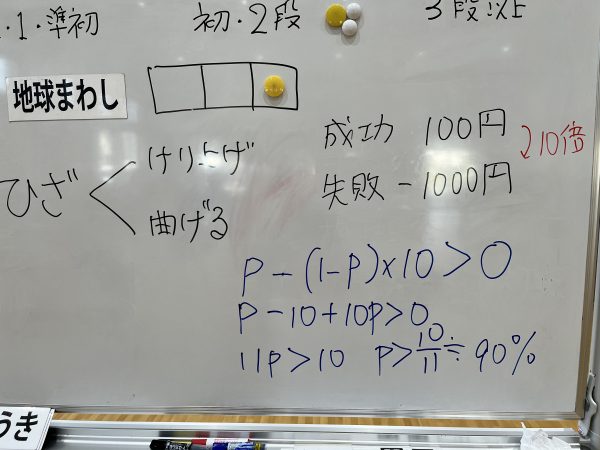 ・1・準初
初・2段
3段以上
地球まわし
ひざ
けり上げ
曲げる
成功 100円
失敗 -1000円
10倍
P-(1-P)×10>0
P-10+10P>0
11P>10 P>10/11≒90%
うき